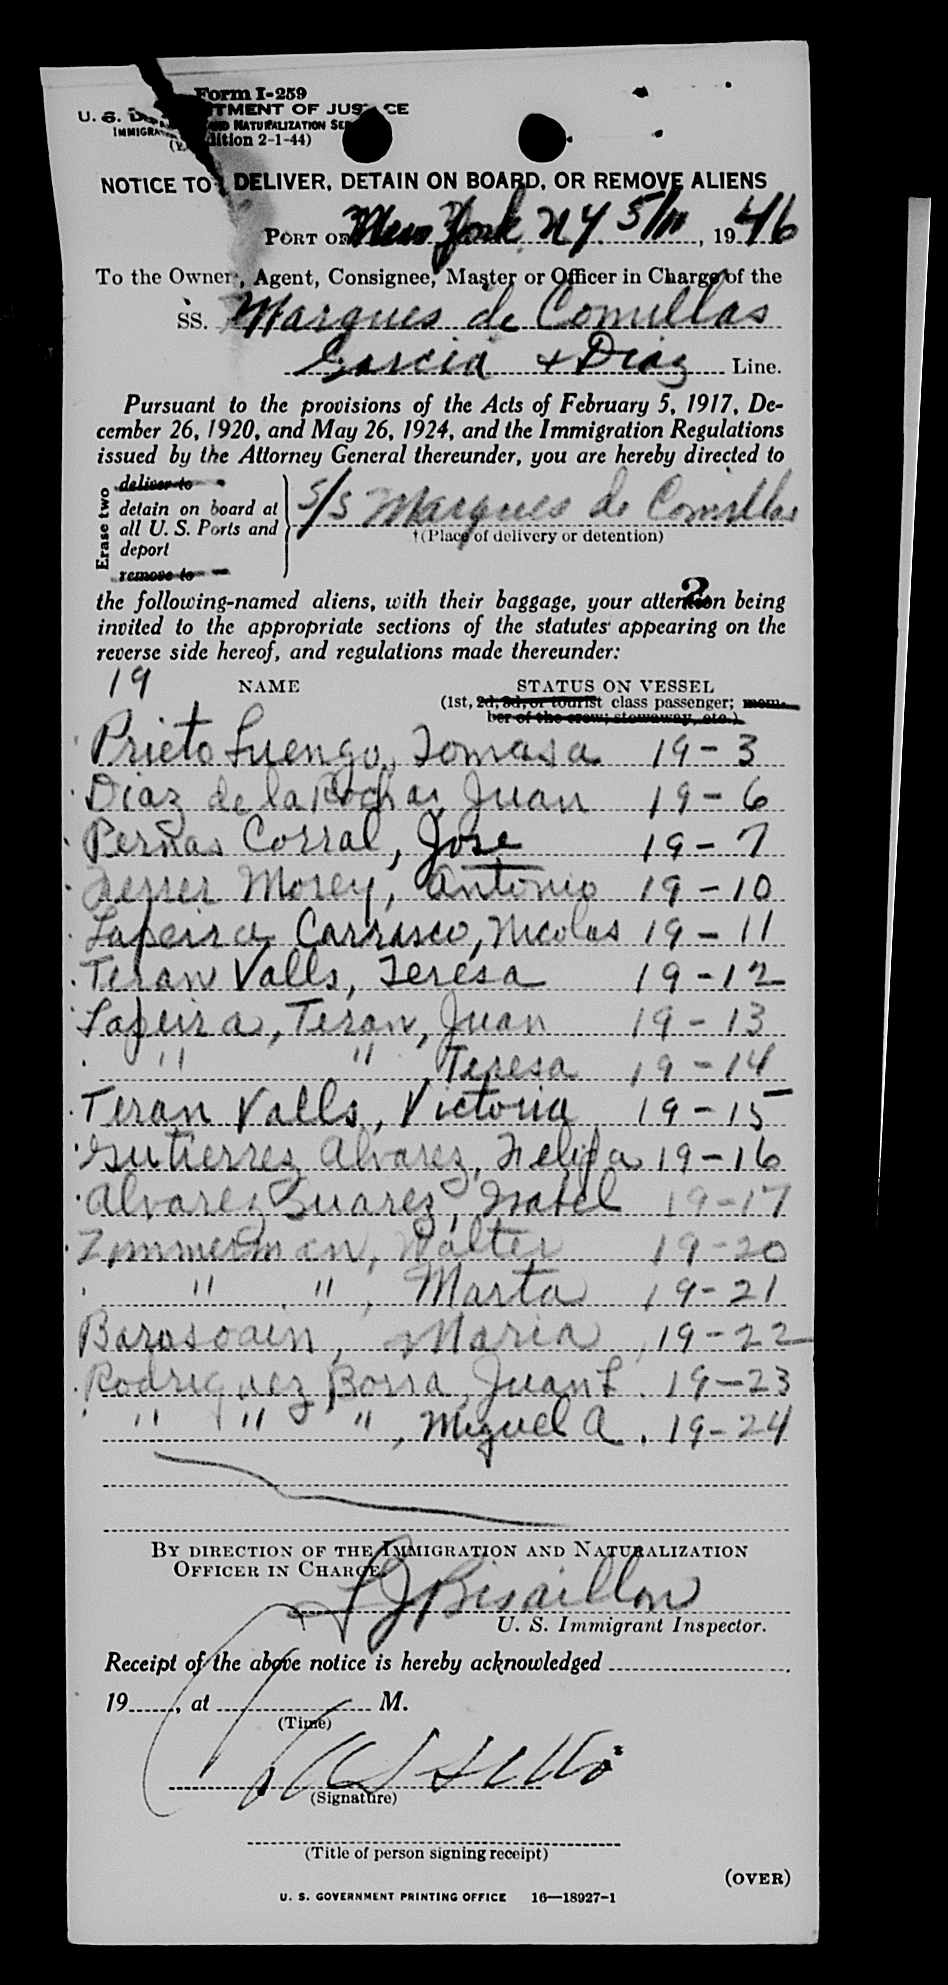 Form I-259
U. S. TMENT OF JUS CE
IMMIGRA AND NATURALIZATION SER
dition 2-1-44)
NOTICE TO DELIVER, DETAIN ON BOARD, OR REMOVE ALIENS
PORT OF New York N Y 5/11, 1946
To the Owner, Agent, Consignee, Master or Officer in Charge of the
SS. Marques de Comillas
Garcia + Diaz Line.
Pursuant to the provisions of the Acts of February 5, 1917, De-
cember 26, 1920, and May 26, 1924, and the Immigration Regulations
issued by the Attorney General thereunder, you are hereby directed to
Erase two
deliver to
detain on board at
all U. S. Ports and
deport
remove to
S/S Marques de Comillas
†(Place of delivery or detention)
2
the following-named aliens, with their baggage, your attention being
invited to the appropriate sections of the statutes appearing on the
reverse side hereof, and regulations made thereunder:
19 NAME STATUS ON VESSEL
(1st, 2d, 3d, or tourist class passenger; mem-
ber of the crew; stowaway, etc.)
Prieto Luengo, Tomasa 19-3
Diaz de la Rocha, Juan 19-6
Pernas Corral, Jose 19-7
Ferrer Morey, Antonio 19-10
Lapeira Carrasco, Nicolas 19-11
Teran Valls, Teresa 19-12
Lapeira, Teran, Juan 19-13
" " , Teresa 19-14
Teran Valls, Victoria 19-15
Gutierrez Alvarez, Felipa 19-16
Alvarez Suarez, Isabel 19-17
Zimmerman, Walter 19-20
" " , Marta 19-21
Barasoain, Maria 19-22
Rodriguez Borra, Juan L. 19-23
" " " , Miguel A. 19-24
BY DIRECTION OF THE IMMIGRATION AND NATURALIZATION
OFFICER IN CHARGE.
L J Bisaillon
U. S. Immigrant Inspector.
Receipt of the above notice is hereby acknowledged
19 , at M.
(Time)
(Signature)
(Title of person signing receipt)
(OVER)
U. S. GOVERNMENT PRINTING OFFICE 16—18927-1